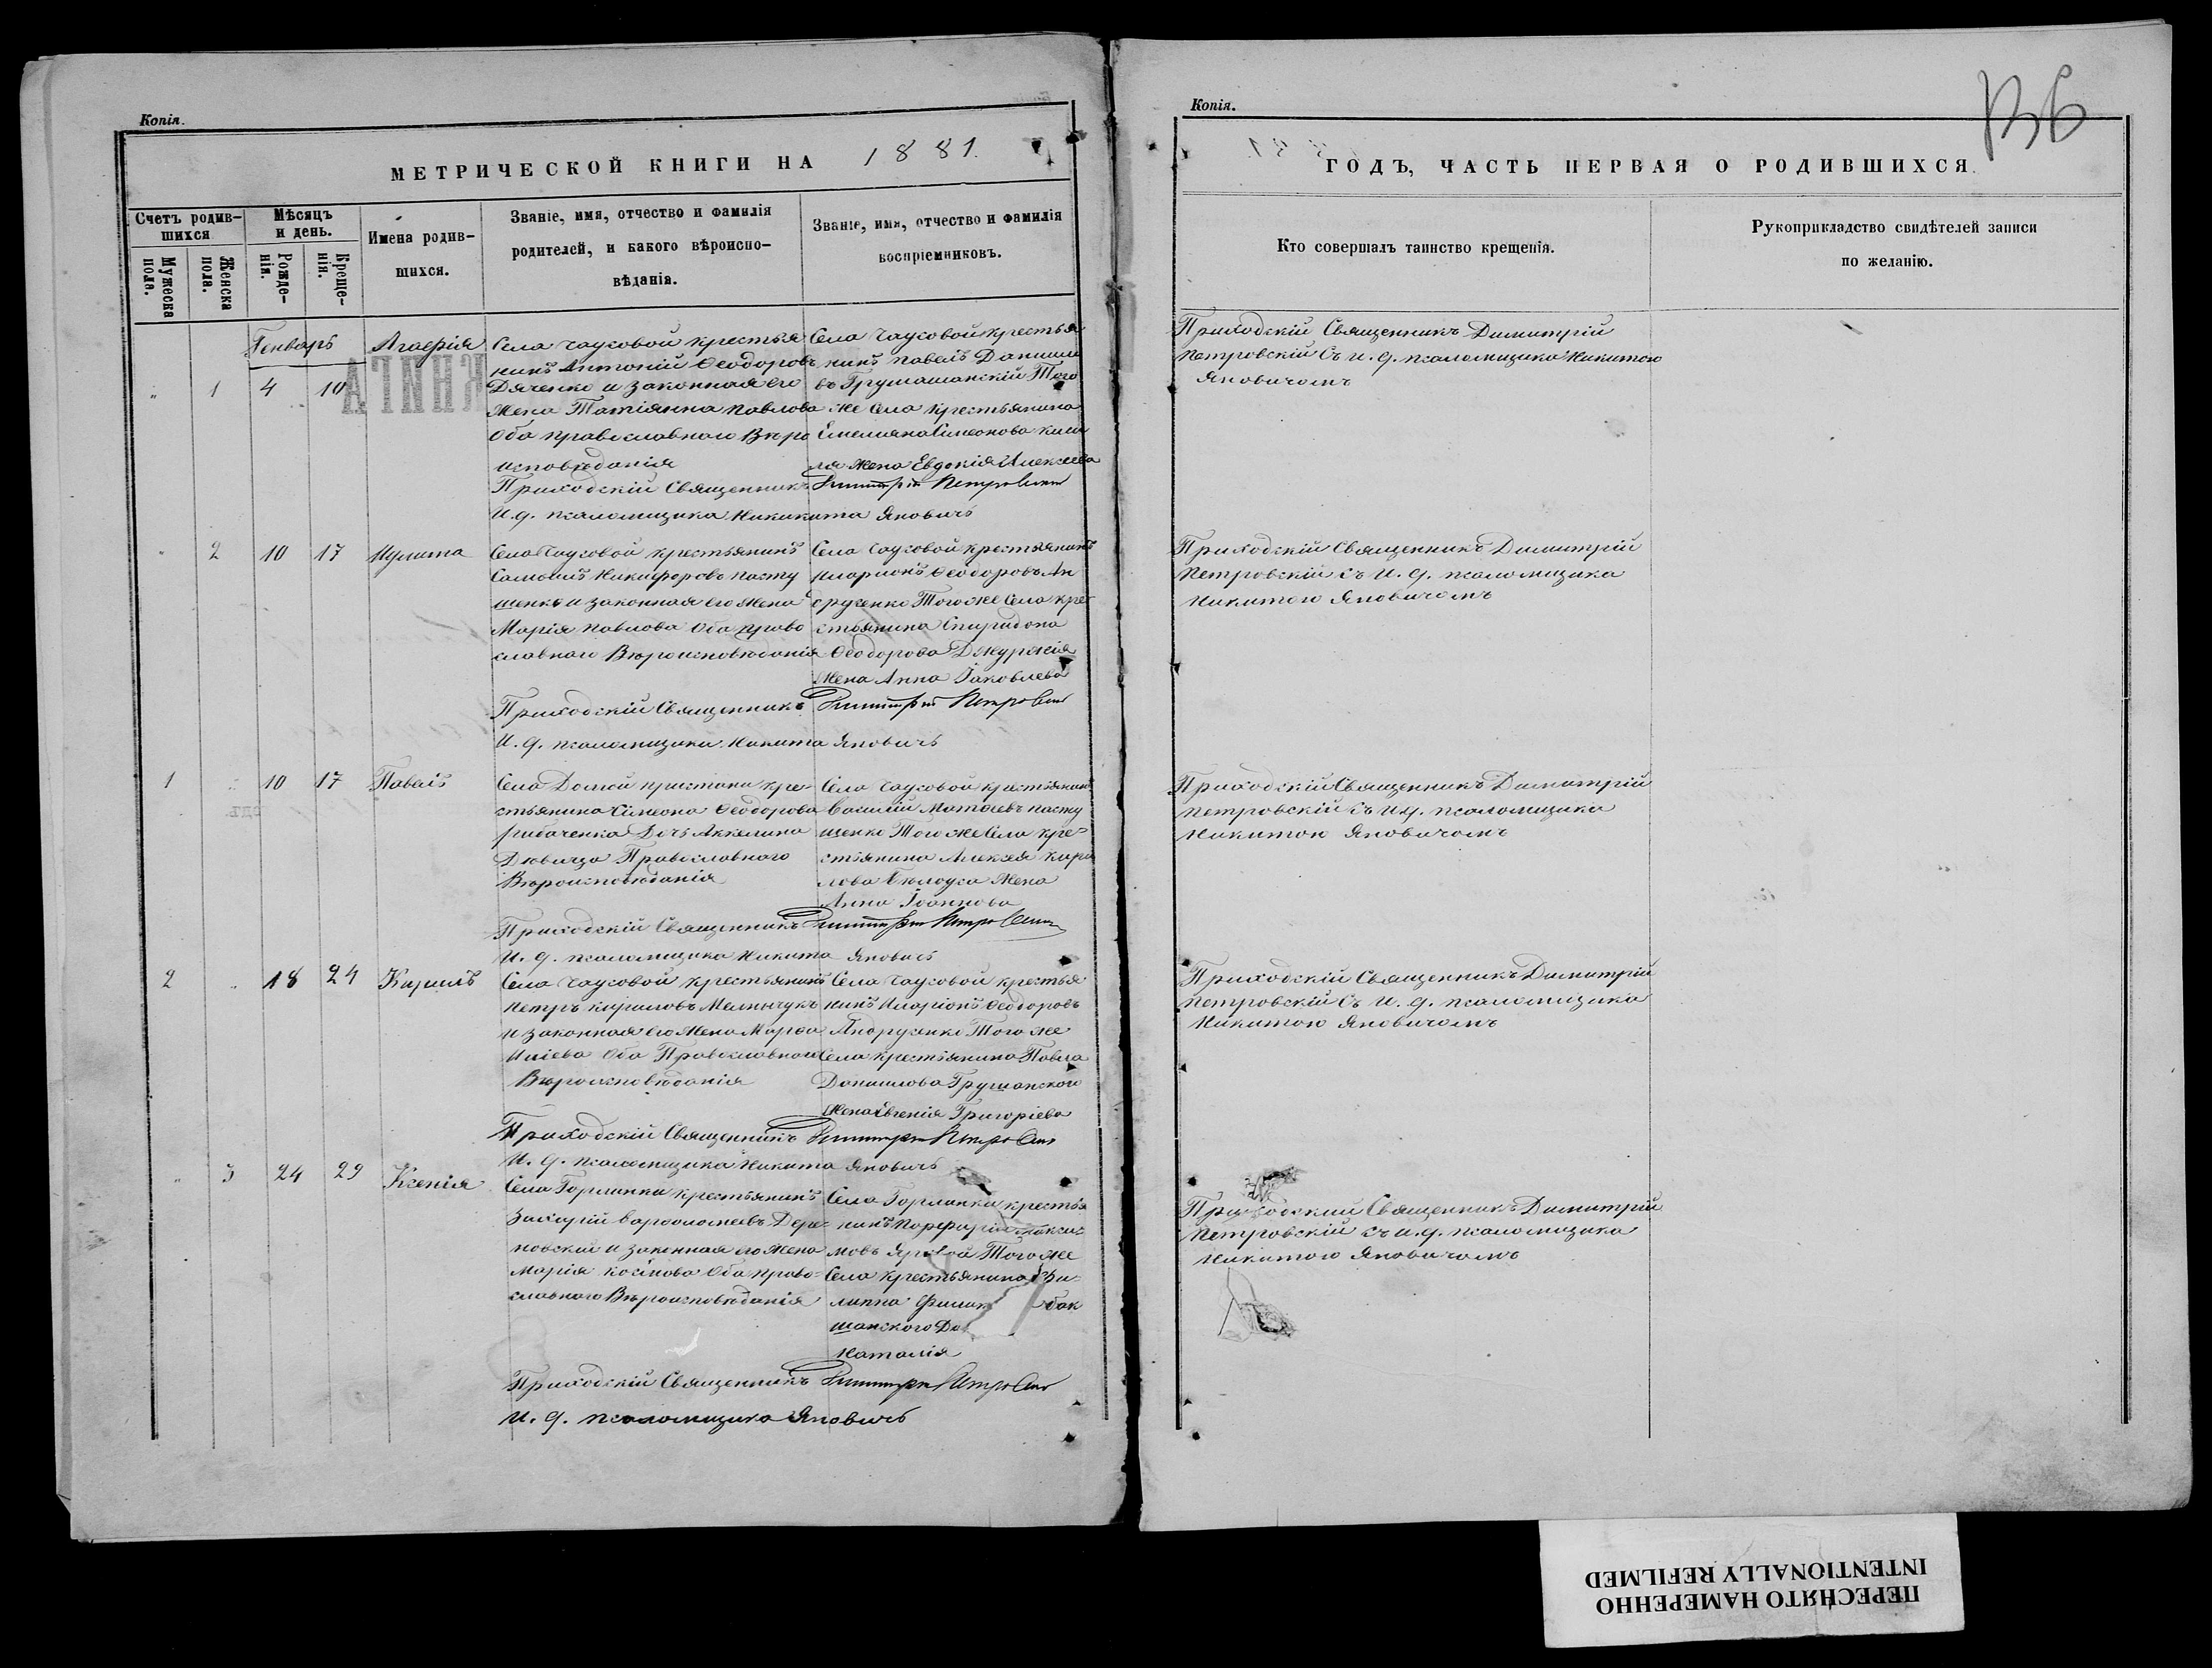 Копія.
МЕТРИЧЕСКОЙ КНИГИ НА 1881.
Счетъ родив-
шихся
Мужеска
пола.
Женска
пола.
Мѣсяцъ
и день.
Рожде-
нія.
Креще-
нія.
Имена родив-
шихся.
Званіе, имя, отчество и фамилія
родителей, и какого вѣроиспо-
вѣданія.
Званіе, имя, отчество и фамилія
воспріемниковъ.
Генварь
КНИГА
" 1 4 10 Агафія
Села Чаусовой крестья
нинъ Антоній Ѳеодоровъ
Дяченко и законная его
Жена Татіянна Павлова
Оба православнаго Вѣро
исповѣданія
Села Чаусовой крестья
нинъ Павелъ Данило
въ Грушашанскій Того
же Села крестьянина
Емеліана Симеонова
жена Евдокія Алексеева
Приходскій Священникъ Димитрій Петровскій
И. д. псаломщика Никикита Яновичъ
" 2 10 17 Иулита
Села Чаусовой крестьянинъ
Самоилъ Никифоровъ Пасту
шенко и законная его Жена
Марія Павлова Оба право
славнаго Вѣроисповѣданія
Села Чаусовой крестьянинъ
Иларионъ Ѳеодоровъ Ан
друсенко Того же Села кре-
стьянина Спиридона
Ѳеодорова Джуржія
Жена Анна Іаковлева
Приходскій Священникъ Димитрій Петровскій
И. д. псаломщика Никита Яновичъ
1 " 10 17 Павелъ
Села Долгой пристани кре-
стьянина Симеона Ѳеодорова
рибаченка Дочь Аккелина
Дѣвица Православнаго
Вѣроисповѣданія
Села Чаусовой крестьянинъ
Василій Матѳеевъ Пасту
шенко Того же Села кре-
стьянина Алексея Кири
лова Бѣлоуса Жена
Анна Іоаннова
Приходскій Священникъ Димитрій Петровскій
И. д. псаломщика Никита Яновичъ
2 " 18 24 Кирилъ
Села Чаусовой крестьянинъ
Петръ Кириловъ Мельничукъ
и законная его Жена Марѳа
Иліева Оба Православнаго
Вѣроисповѣданія
Села Чаусовой крестья
нинъ Иларіонъ Ѳеодоровъ
Андрусенко Того же
Села крестьянина Павла
Данилова Грушанского
Жена Евгенія Григоріева
Приходскій Священникъ Димитрій Петровскій
И. д. псаломщика Никита Яновичъ
" 3 24 29 Ксенія
Села Горлинки крестьянинъ
Захарій Варѳоломеевъ Дере-
новскій и законная его Жена
Марія Косінова Оба право-
славнаго Вѣроисповѣданія
Села Горлинки крестья
нинъ Порфирій Макси-
мовъ Яровой Того же
Села крестьянина Фи-
липпа
шанского
Наталія
Приходскій Священникъ Димитрій Петровскій
И. д. псаломщика Яновичъ
Копія.
136
ГОДЪ, ЧАСТЬ ПЕРВАЯ О РОДИВШИХСЯ.
Кто совершалъ таинство крещенія.
Рукоприкладство свидѣтелей записи
по желанію.
Приходскій Священникъ Димитрій
Петровскій Съ и. д. псаломщика Никитою
Яновичомъ
Приходскій Священникъ Димитрій
Петровскій съ И. д. псаломщика
Никитою Яновичомъ
Приходскій Священникъ Димитрій
Петровскій съ и. д. псаломщика
Никитою Яновичомъ
Приходскій Священникъ Димитрій
Петровскій Съ и. д. псаломщика
Никитою Яновичомъ
Приходскій Священникъ Димитрій
Петровскій съ и. д. псаломщика
Никитою Яновичомъ
ПЕРЕСНЯТО НАМЕРЕННО
INTENTIONALLY REFILMED